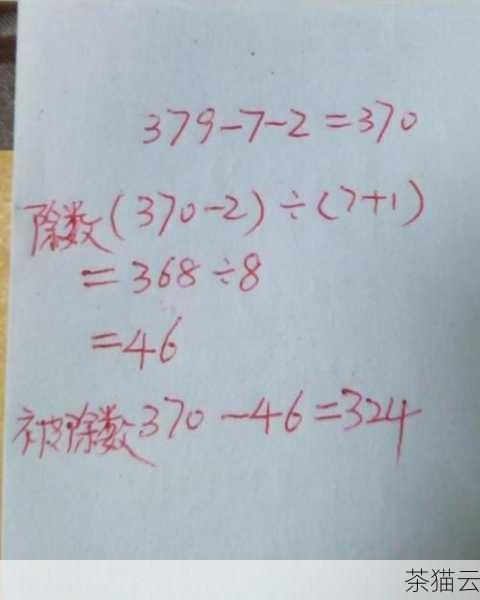 379-7-2=370
除数(370-2)÷(7+1)
=368÷8
=46
被除数370-46=324
茶猫云